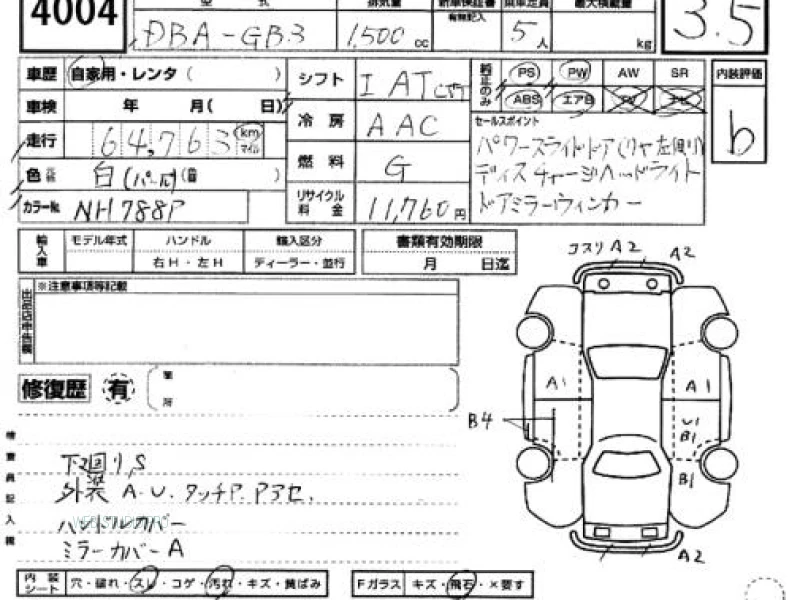 4004
型 式
排気量
乗車定員
最大積載量
有無記入
DBA-GB3
1,500 cc
5人
kg
3.5
車歴 自家用・レンタ( )
シフト I AT
純正のみ PS PW AW SR
ABS エアB TV ナビ
内装評価
b
車検 年 月( 日)
冷房 AAC
セールスポイント
走行 64,763 km マイル
燃料 G
パワースライドドア(リヤ左側り)
ディスチャージヘッドライト
ドアミラーウィンカー
色 白(パール)( )
カラーNo. NH788P
リサイクル料金 11,760円
輸入車 モデル年式 ハンドル 輸入区分
右H・左H ディーラー・並行
書類有効期限
月 日迄
コスリ A2 A2
出品店申告欄 ※注意事項等記載
修復歴 有
箇所
A1 A1
B4
U1
B1
B1
A2
検査員記入欄
下廻りS
外装 A.U. タッチP. Pアセ.
ハンドルカバー
ミラーカバーA
内装シート 穴・破れ・スレ・コゲ・汚れ・キズ・黄ばみ
Fガラス キズ・飛石・×要す